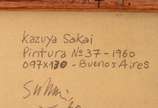 Kazuya Sakai
Pintura Nº 37 - 1960
097x130 - Buenos Aires
Sakai